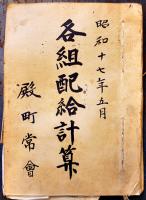 昭和十七年五月
各組配給計算
殿町常會